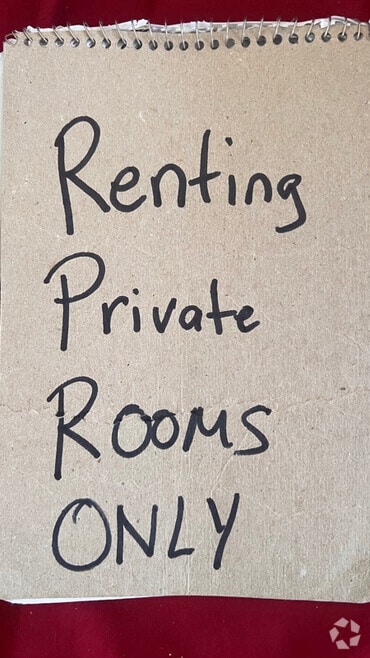 Renting
Private
ROOMS
ONLY